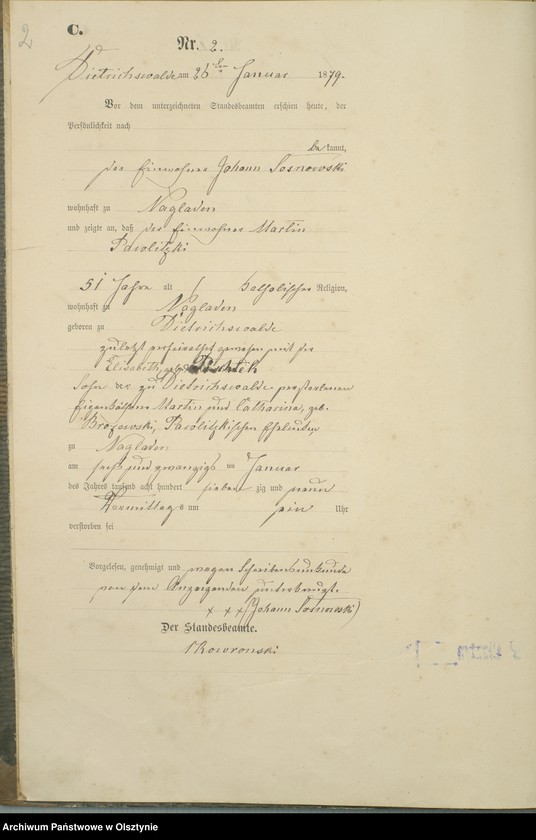 2
C.
Nr. 2.
Dietrichswalde am 26ten Januar 1879.
Vor dem unterzeichneten Standesbeamten erschien heute, der
Persönlichkeit nach
be kannt,
der Einwohner Johann Sosnowski
wohnhaft zu Nagladen
und zeigte an, daß der Einwohner Martin
Pawlitzki
51 Jahre alt katholischer Religion,
wohnhaft zu Nagladen
geboren zu Dietrichswalde
zuletzt verheirathet gewesen mit der
Elisabeth, geb.
Sohn der zu Dietrichswalde verstorbenen
Eigenkäthner Martin und Catharina, geb.
Pawlitzkischen Eheleuten
zu Nagladen
am sechs und zwanzigsten Januar
des Jahres tausend acht hundert sieben zig und neun
Vormittags um ein Uhr
verstorben sei
Vorgelesen, genehmigt und wegen Schreibensunkunde
von dem Anzeigenden unterkreuzt.
x x x (Johann Sosnowski)
Der Standesbeamte.
Skowronski
Archiwum Państwowe w Olsztynie